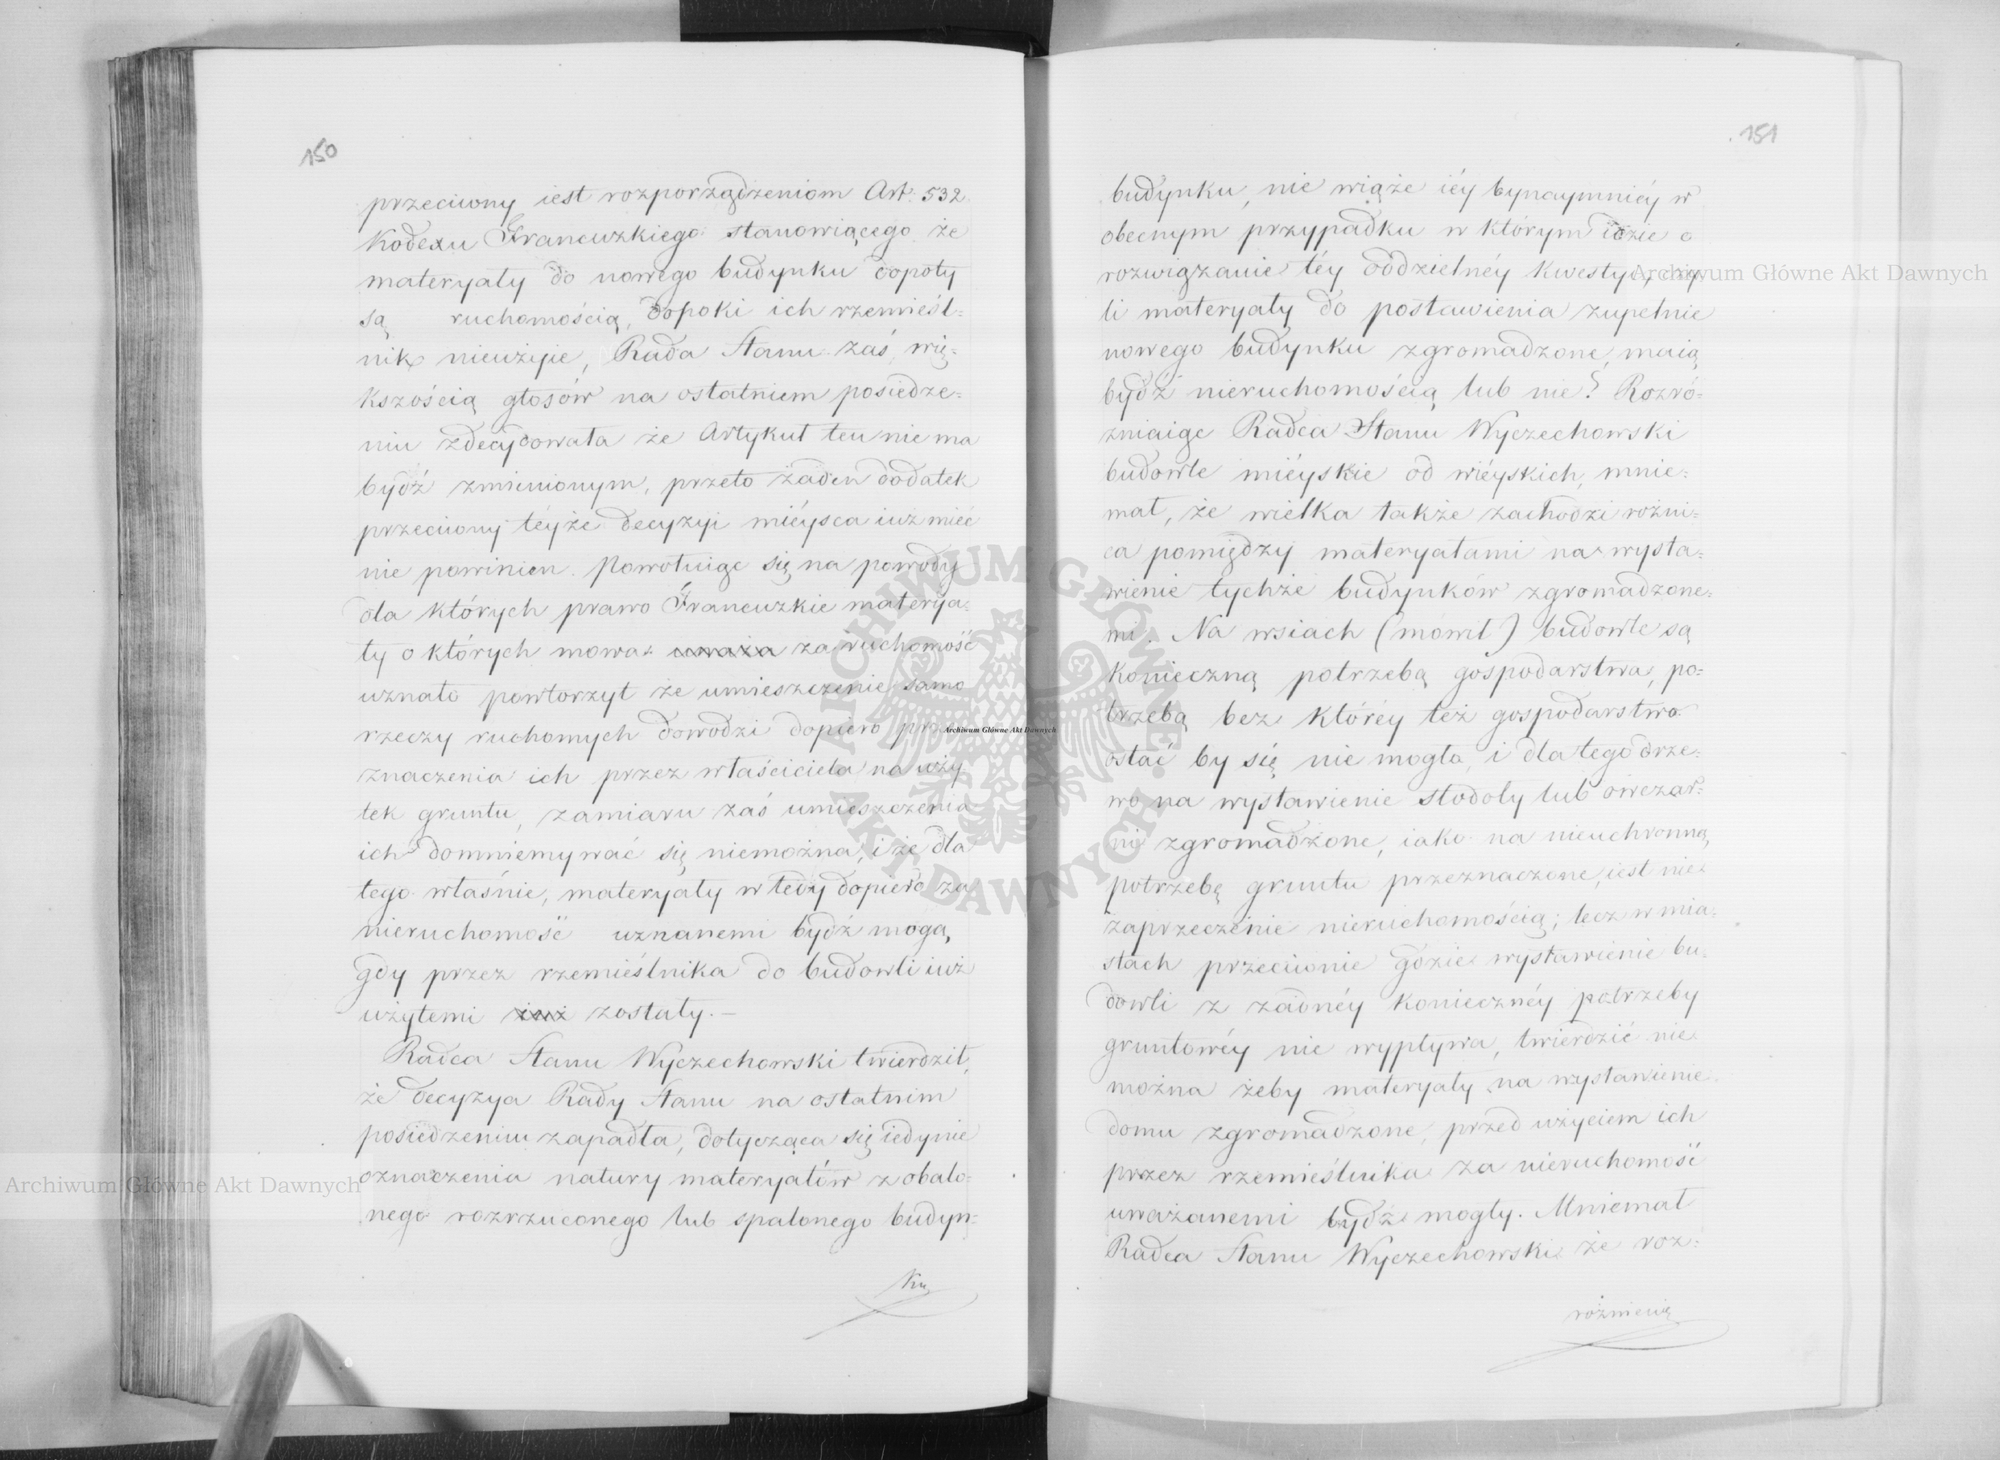 150
przeciwny iest rozporządzeniom Art: 532.
Kodexu Francuzkiego stanowiącego że
materyały do nowego budynku dopóty
są ruchomością, dopóki ich rzemieśl-
nik nieużyie, Rada Stanu zaś, wię-
kszością głosów na ostatniem posiedze-
niu zdecydowała że Artykuł ten nie ma
bydź zmienionym, przeto żaden dodatek
przeciwny téyże decyzyi mieysca iuż mieć
nie powinien. Powołuiąc się na powody
dla których prawo Francuzkie materya-
ły o których mowa uważa za ruchomość
uznało powtorzył że umieszczenie samo
rzeczy ruchomych dowodzi dopiero prze
znaczenia ich przez właściciela na uży
tek gruntu, zamiaru zaś umieszczenia
ich domniemywać się niemożna, i że dla
tego właśnie, materyały w tedy dopiero za
nieruchomość uznanemi bydź mogą,
gdy przez rzemieślnika do budowli iuż
użytemi iuż zostały. —
Radca Stanu Wyczechowski twierdził,
że decyzya Rady Stanu na ostatnim
posiedzeniu zapadła, dotycząca się iedynie
oznaczenia natury materyałów z obalo-
nego rozrzuconego lub spalonego budyn-
ku
151
budynku, nie wiąże iéy bynaymniéy w
obecnym przypadku w którym idzie o
rozwiązanie téy oddzielnéy kwestyi, czy
li materyały do postawienia zupełnie
nowego budynku zgromadzone, maią
bydź nieruchomością lub nie? Rozró-
żniaiąc Radca Stanu Wyczechowski
budowle miéyskie od wiéyskich, mnie-
mał, że wielka także zachodzi rożni-
ca pomiędzy materyałami na wysta-
wienie tychże budynków zgromadzone-
mi. Na wsiach (mowił) budowle są
konieczną potrzebą gospodarstwa, po-
trzebą bez któréy też gospodarstwo
ostać by się nie mogło, i dla tego drze-
wo na wystawienie stodoły lub owczar-
ni zgromadzone, iako na nieuchronną
potrzebę gruntu przeznaczone, iest nie-
zaprzeczenie nieruchomością; lecz w mia-
stach przeciwnie gdzie wystawienie bu-
dowli z żadnéy koniecznéy potrzeby
gruntowéy nie wypływa, twierdzić nie
można żeby materyały na wystawienie
domu zgromadzone, przed użyciem ich
przez rzemieślnika za nieruchomość
uważanemi bydź mogły. Mniemał
Radca Stanu Wyczechowski że roz-
rożnienia
Archiwum Główne Akt Dawnych
Archiwum Główne Akt Dawnych
Archiwum Główne Akt Dawnych
ARCHIWUM GŁÓWNE AKT DAWNYCH